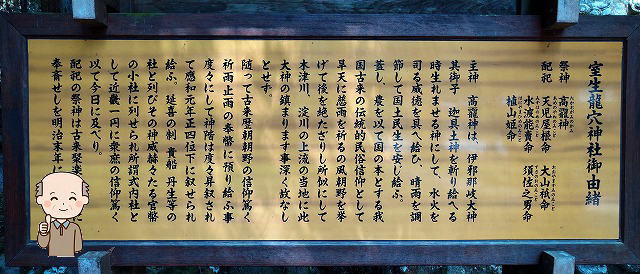 室生龍穴神社御由緒
祭神 高龗神
配祀 天児屋根命 大山祇命
水波能賣命 須佐之男命
植山姫命
主神 高龗神は、伊邪那岐大神
其御子 迦具土神を斬り給へる
時生れませる神にして、水火を
司る威徳を具へ給ひ 晴雨を調
節して国土民生を安じ給ふ。
蓋し、農を以て国の本とする我
国古来の伝統的民俗信仰として
旱天に慈雨を祈るの風朝野を挙
げて後を絶たざりし所似にして
木津川、淀川の上流の当地に此
大神の鎮まります事深く故なし
とせず。
随って古来歴朝朝野の信仰篤く
祈雨止雨の奉幣に預り給ふ事
度々にして神階は度々昇叙され
て応和元年正四位下に叙せられ
給ふ。延喜の制 貴船 丹生等の
社と列びその神威赫々たる官幣
の小社に列せられ所謂式内社と
して近畿一円に衆庶の信仰篤く
以て今日に及べり。
配祀の祭神は古来
奉斎せしを明治末年